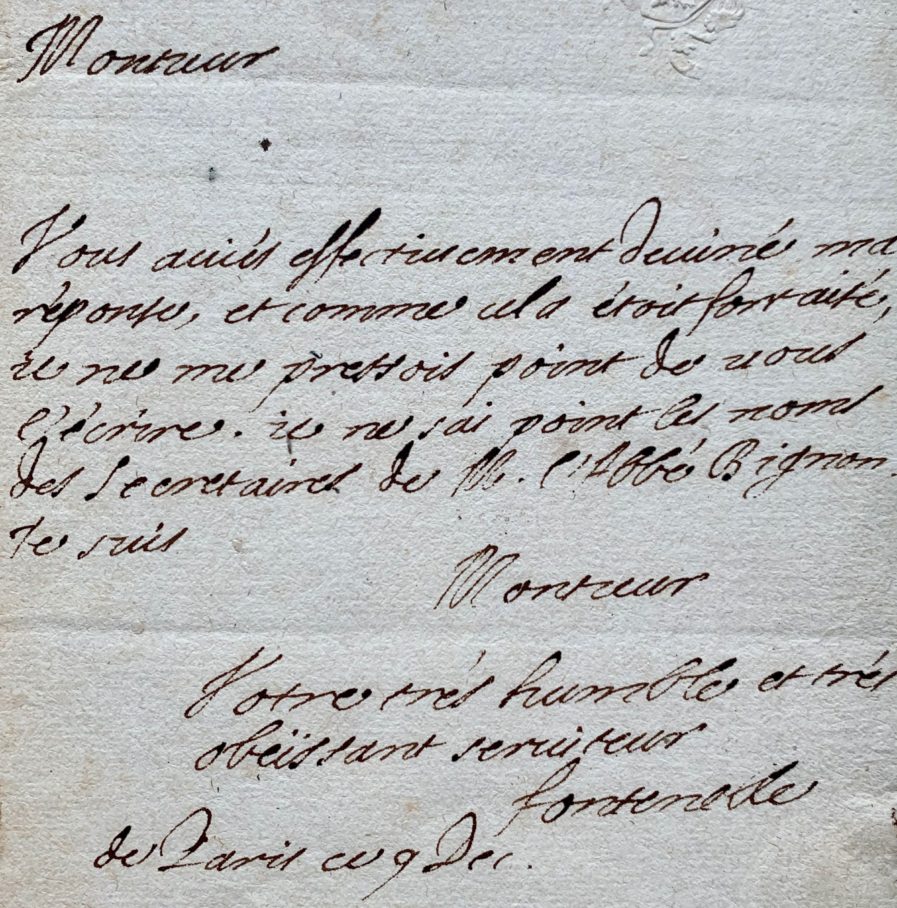 Monsieur
Vous aviés effectivement deviné ma
réponse, et comme cela étoit fort aisé,
ie ne me pressois point de vous
l'écrire. ie ne sai point les noms
des Secretaires de M. l'Abbé Bignon.
Je suis
Monsieur
Votre trés humble et trés
obëissant serviteur
fontenelle
de Paris ce 9 Dec.